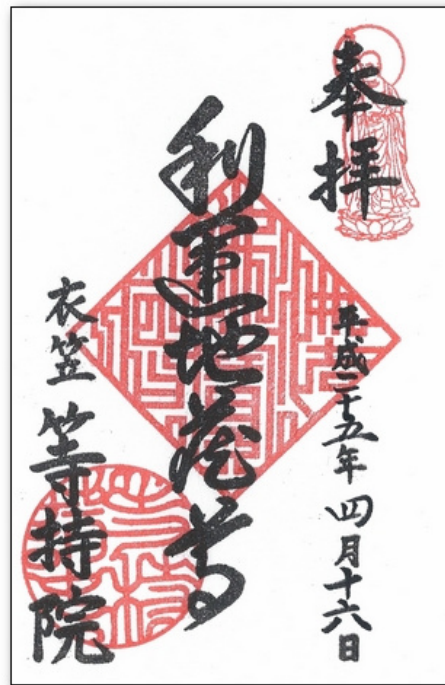 奉拝
平成二十五年四月十六日
利運地蔵尊
衣笠 等持院